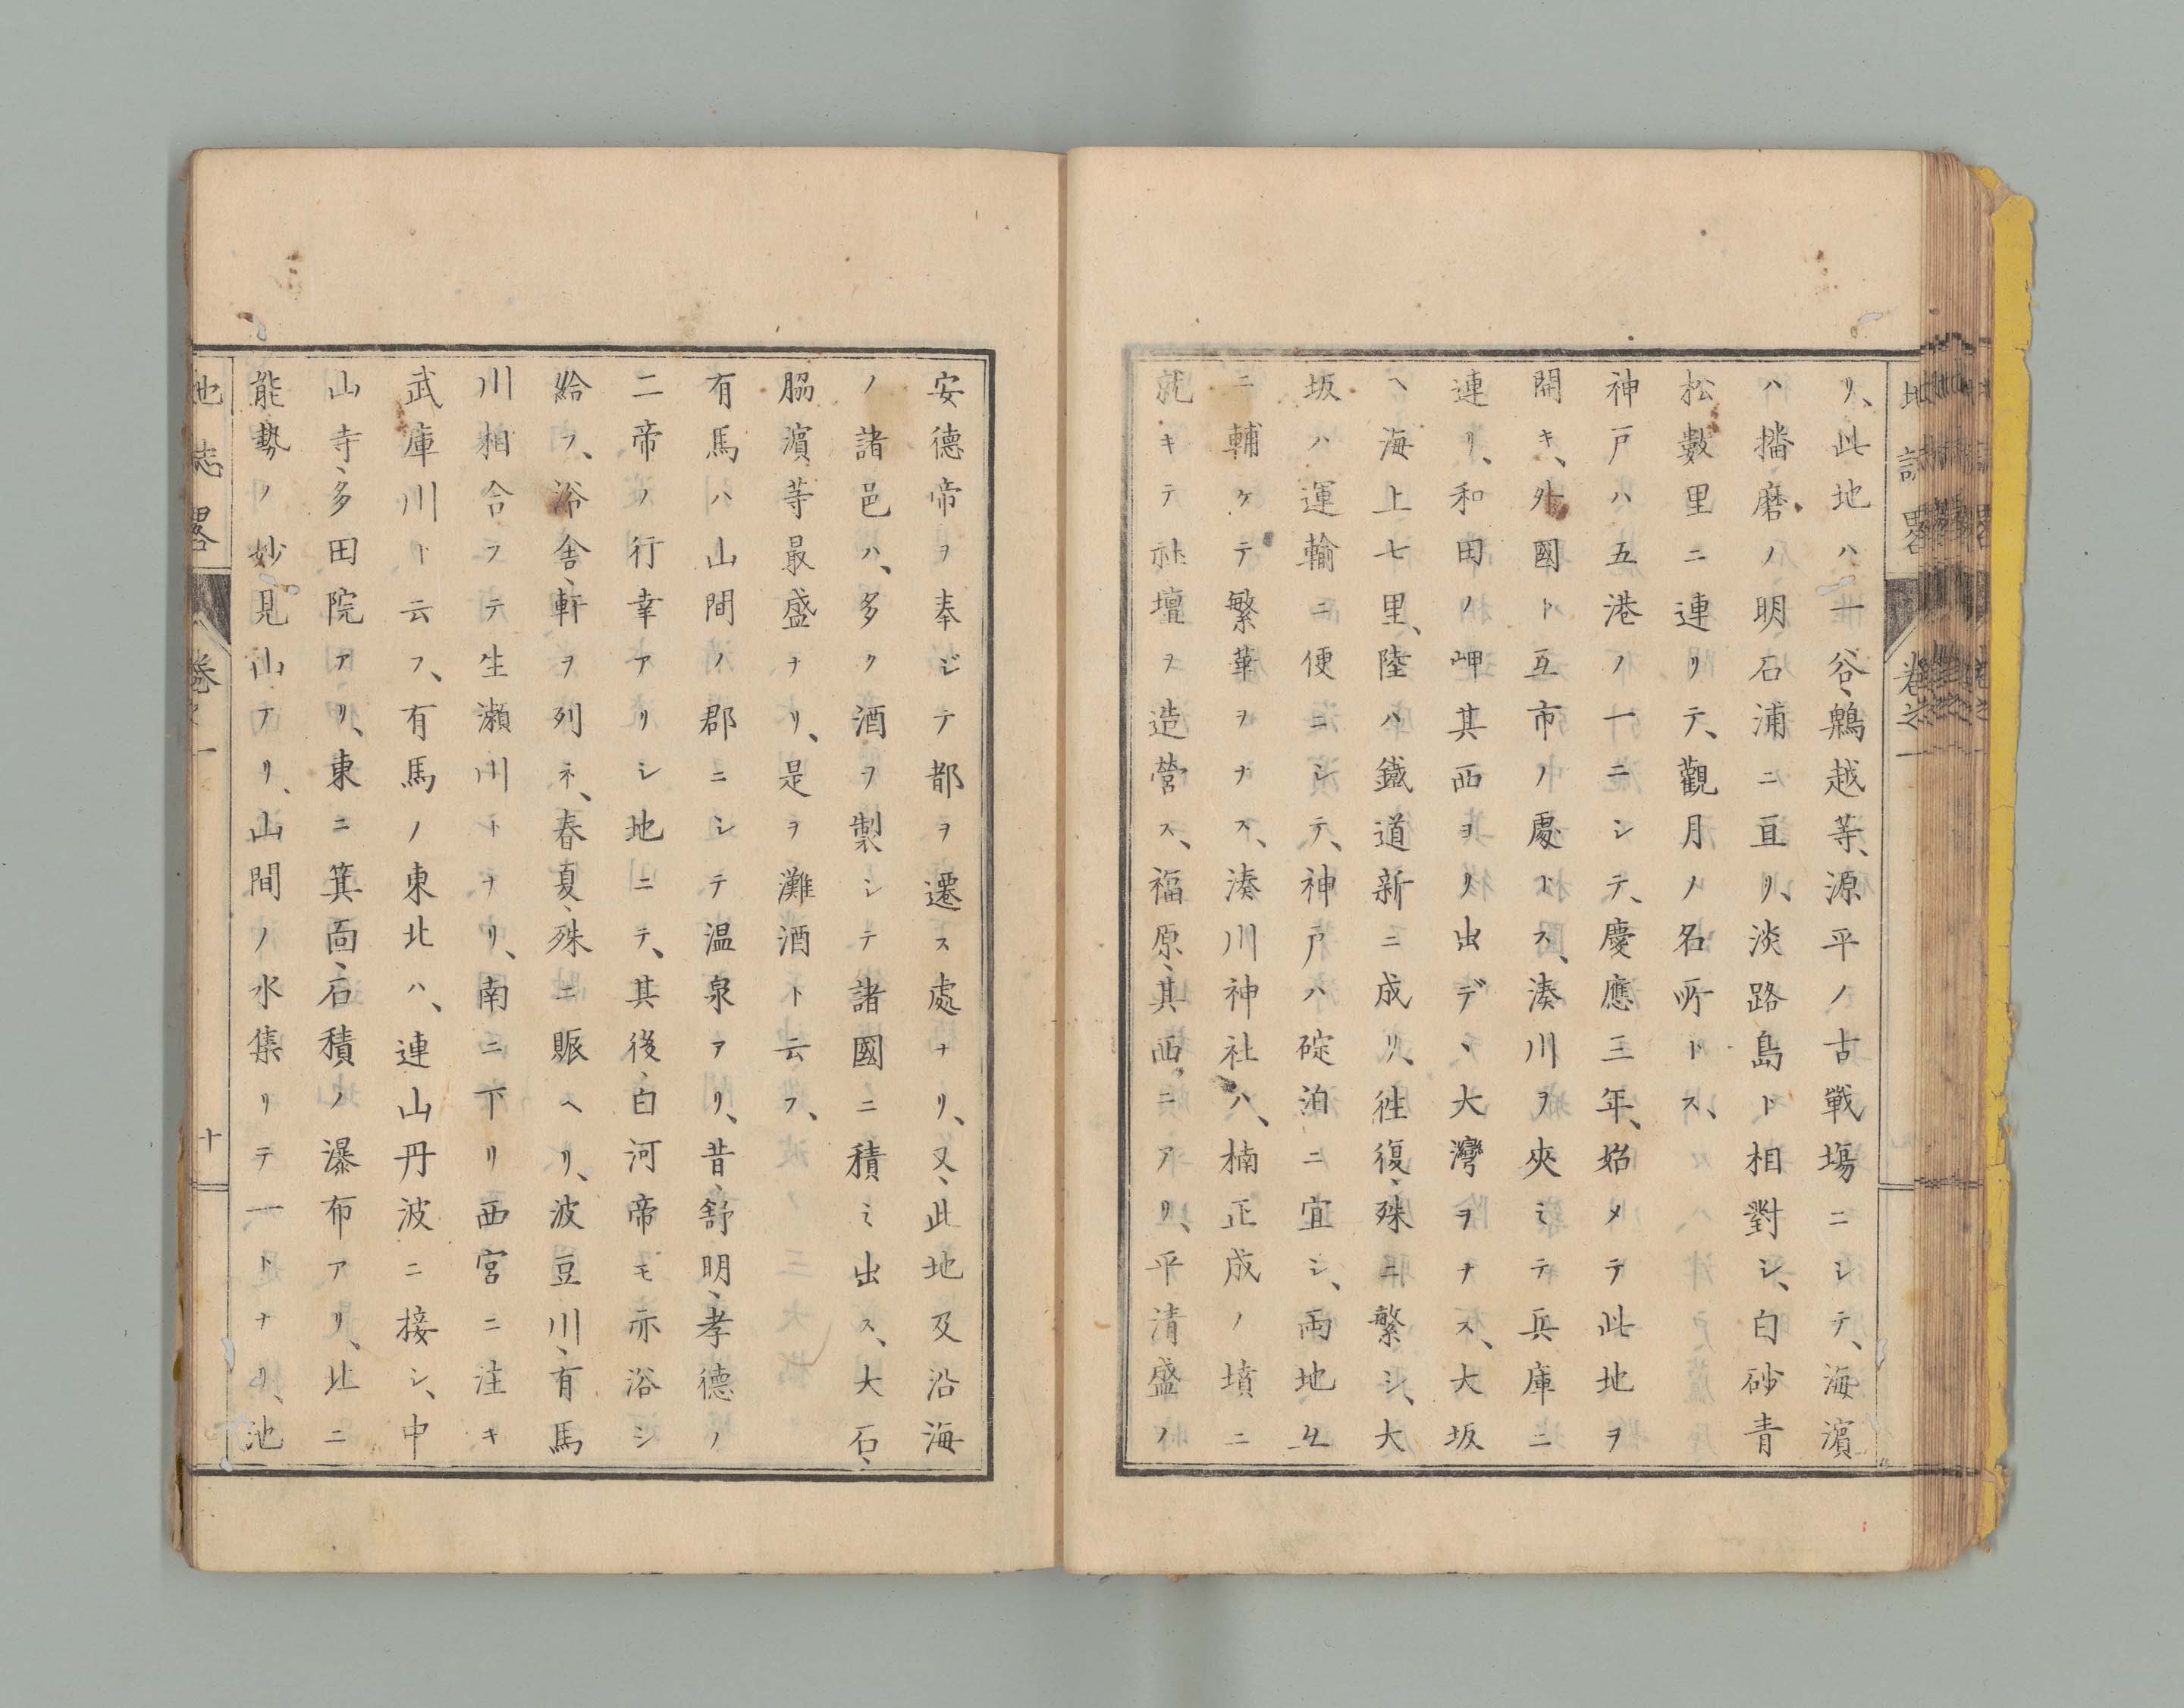 地誌畧 卷之一
リ、此地ハ、一谷、鵯越等、源平ノ古戰塲ニシテ、海濵
ハ播磨ノ明石浦ニ亘リ、淡路島ト相對シ、白砂青
松數里ニ連リテ、觀月ノ名所トス、
神戸ハ五港ノ一ニシテ、慶應三年、始メテ此地ヲ
開キ、外國ト互市ノ處トス、湊川ヲ夾ミテ兵庫ニ
連リ、和田ノ岬其西ヨリ出デヽ大灣ヲナス、大坂
ヘ海上七里、陸ハ鐵道新ニ成リ、徃復、殊ニ繁シ、大
坂ハ運輸ニ便ニシテ、神戸ハ碇泊ニ宜シ、両地互
ニ輔ケテ繁華ヲナス、湊川神社ハ、楠正成ノ墳ニ
就キテ社壇ヲ造營ス、福原、其西ニアリ、平清盛ノ
安德帝ヲ奉ジテ都ヲ遷ス處ナリ、又、此地及沿海
ノ諸邑ハ、多ク酒ヲ製シテ諸國ニ積ミ出ス、大石、
脇濵等最盛ナリ、是ヲ灘酒ト云フ、
有馬ハ山間ノ郡ニシテ温泉アリ、昔、舒明、孝德ノ
二帝ノ行幸アリシ地ニテ、其後、白河帝モ亦浴シ
給フ、浴舎、軒ヲ列ネ、春夏、殊ニ賑ヘリ、波豆川、有馬
川相合フテ生瀬川トナリ、南ニ下リ西宮ニ注キ
武庫川ト云フ、有馬ノ東北ハ、連山丹波ニ接シ、中
山寺、多田院アリ、東ニ箕面、石積ノ瀑布アリ、北ニ
能勢ノ妙見山アリ、山間ノ水集リテ一トナリ、池
地誌畧 卷之一 十